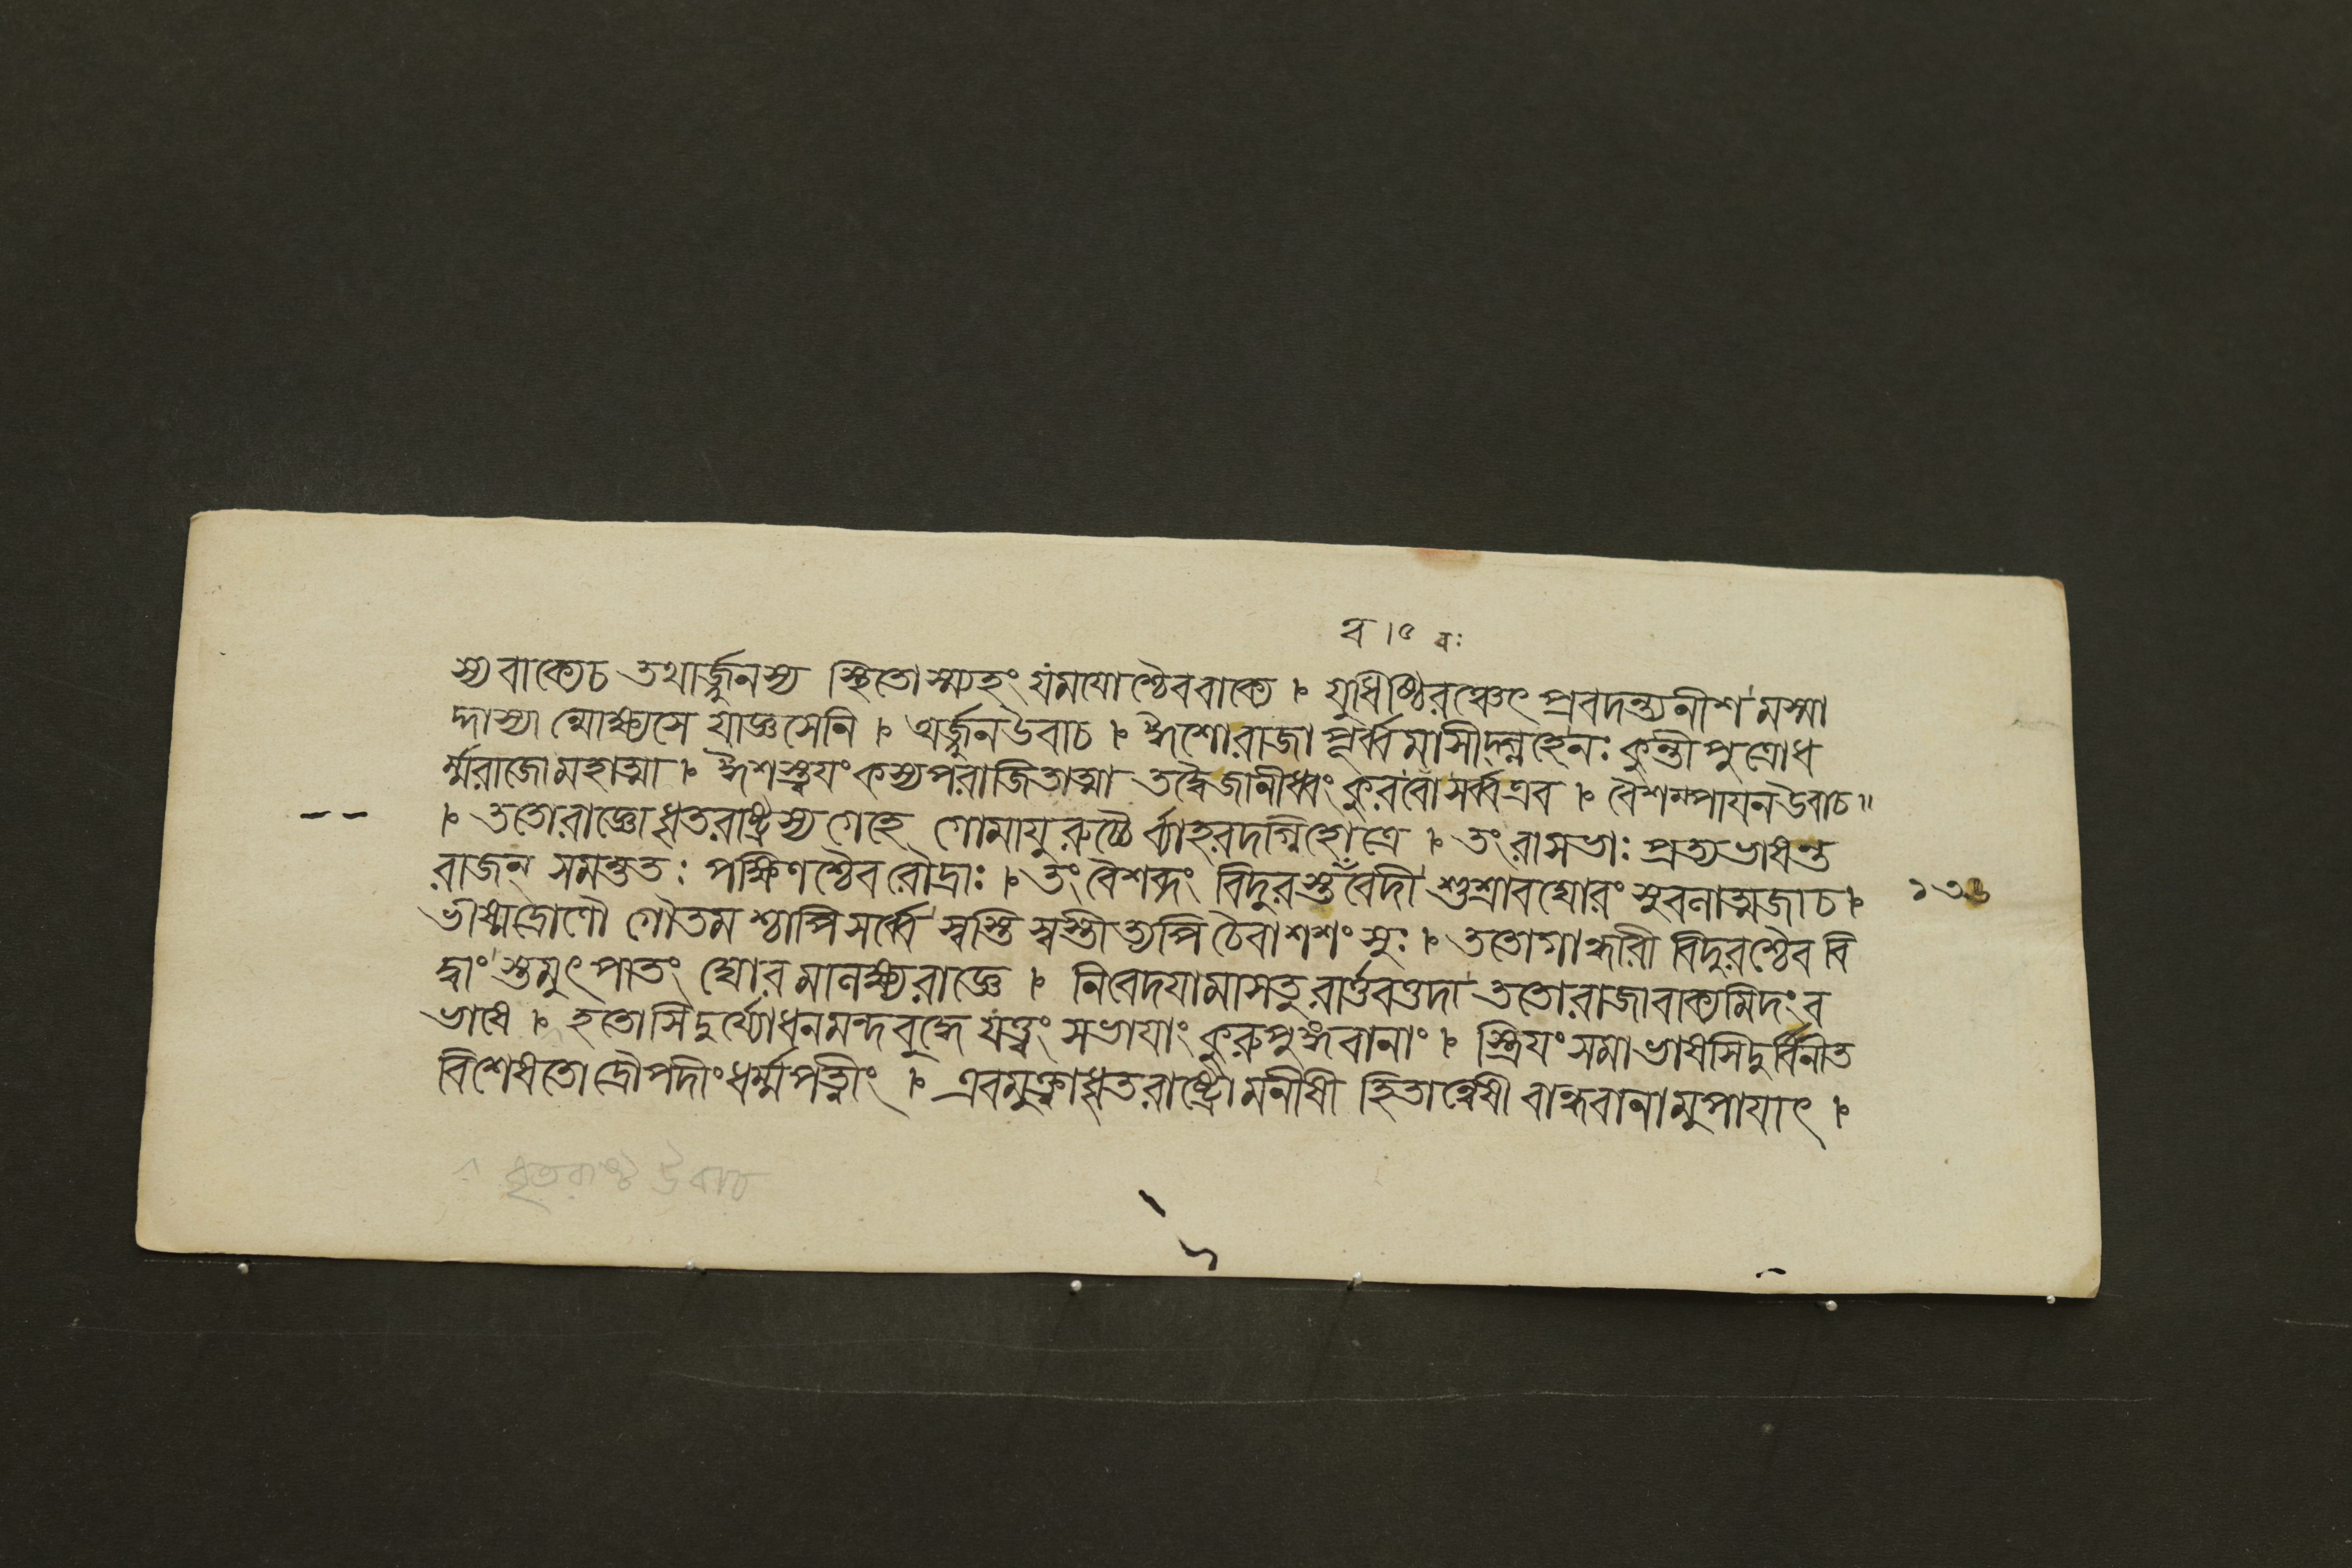 ব ।৫ বঃ
স্য বাক্যেচ তথার্জ্জুনস্য স্থিতোস্ম্যহং যমযোশ্চৈববাক্যে । যুধিষ্ঠিরঞ্চেৎ প্রবদন্ত্যনীশমস্মা
দ্দাস্যান্মোক্ষ্যসে যাজ্ঞসেনি । অর্জ্জুনউবাচ । ঈশোরাজা পূর্ব্বমাসীদ্গ্লহেনঃ কুন্তীপুত্রোধ
র্ম্মরাজোমহাত্মা । ঈশস্ত্বযং কস্যপরাজিতাত্মা তদ্বৈজানীধ্বং কুরবোসর্ব্বএব । বৈশম্পাযনউবাচ॥
। ততোরাজ্ঞোধৃতরাষ্ট্রস্যগেহে গোমাযুরুচ্চৈর্ব্যাহরদগ্নিহোত্রে । তং রাসভাঃ প্রত্যভাষন্ত
রাজন্ সমন্ততঃ পক্ষিণশ্চৈবরৌদ্রাঃ । তং বৈশব্দং বিদুরস্তত্ত্ববেদী শুশ্রাবঘোরং সুবনাত্মজাচ । ১৩৬
ভীষ্মদ্রোণৌ গৌতমশ্চাপিসর্ব্বে স্বস্তি স্বস্তীত্যপি চৈবাশশংসুঃ । ততোগান্ধারী বিদুরশ্চৈব বি
দ্বাংস্তমুৎপাতং ঘোরমানক্ষ্যরাজ্ঞে । নিবেদযামাসতুরার্ত্তবত্তদা ততোরাজাবাক্যমিদংব
ভাষে । হতোসিদুর্য্যোধনমন্দবুদ্ধে যত্ত্বং সভাযাং কুরুপুঙ্গবানাং । স্ত্রিযং সমাভাষসিদুর্ব্বিনীত
বিশেষতোদ্রৌপদীংধর্ম্মপত্নীং । এবমুক্ত্বাধৃতরাষ্ট্রোমনীষী হিতান্বেষী বান্ধবানামুপাযাৎ ।
ধৃতরাষ্ট্র উবাচ